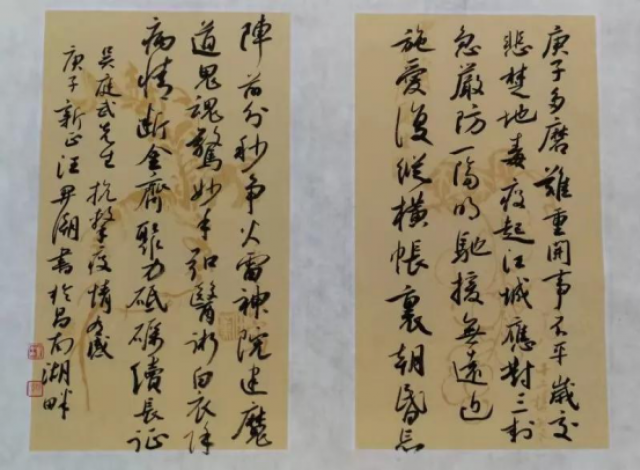 庚子多磨難重開事不平歲交
悲楚地毒疫起江城應對三封
急嚴防一隔明馳援無遠近
施愛復縱橫帳裏朝昏忘
陣前分秒爭火雷神院建魔
道鬼魂驚妙手醫術白衣除
病情斷金齊聚力砥礪續長征
吳庭武先生抗擊疫情有感
庚子新正汪湖書於昌南湖畔